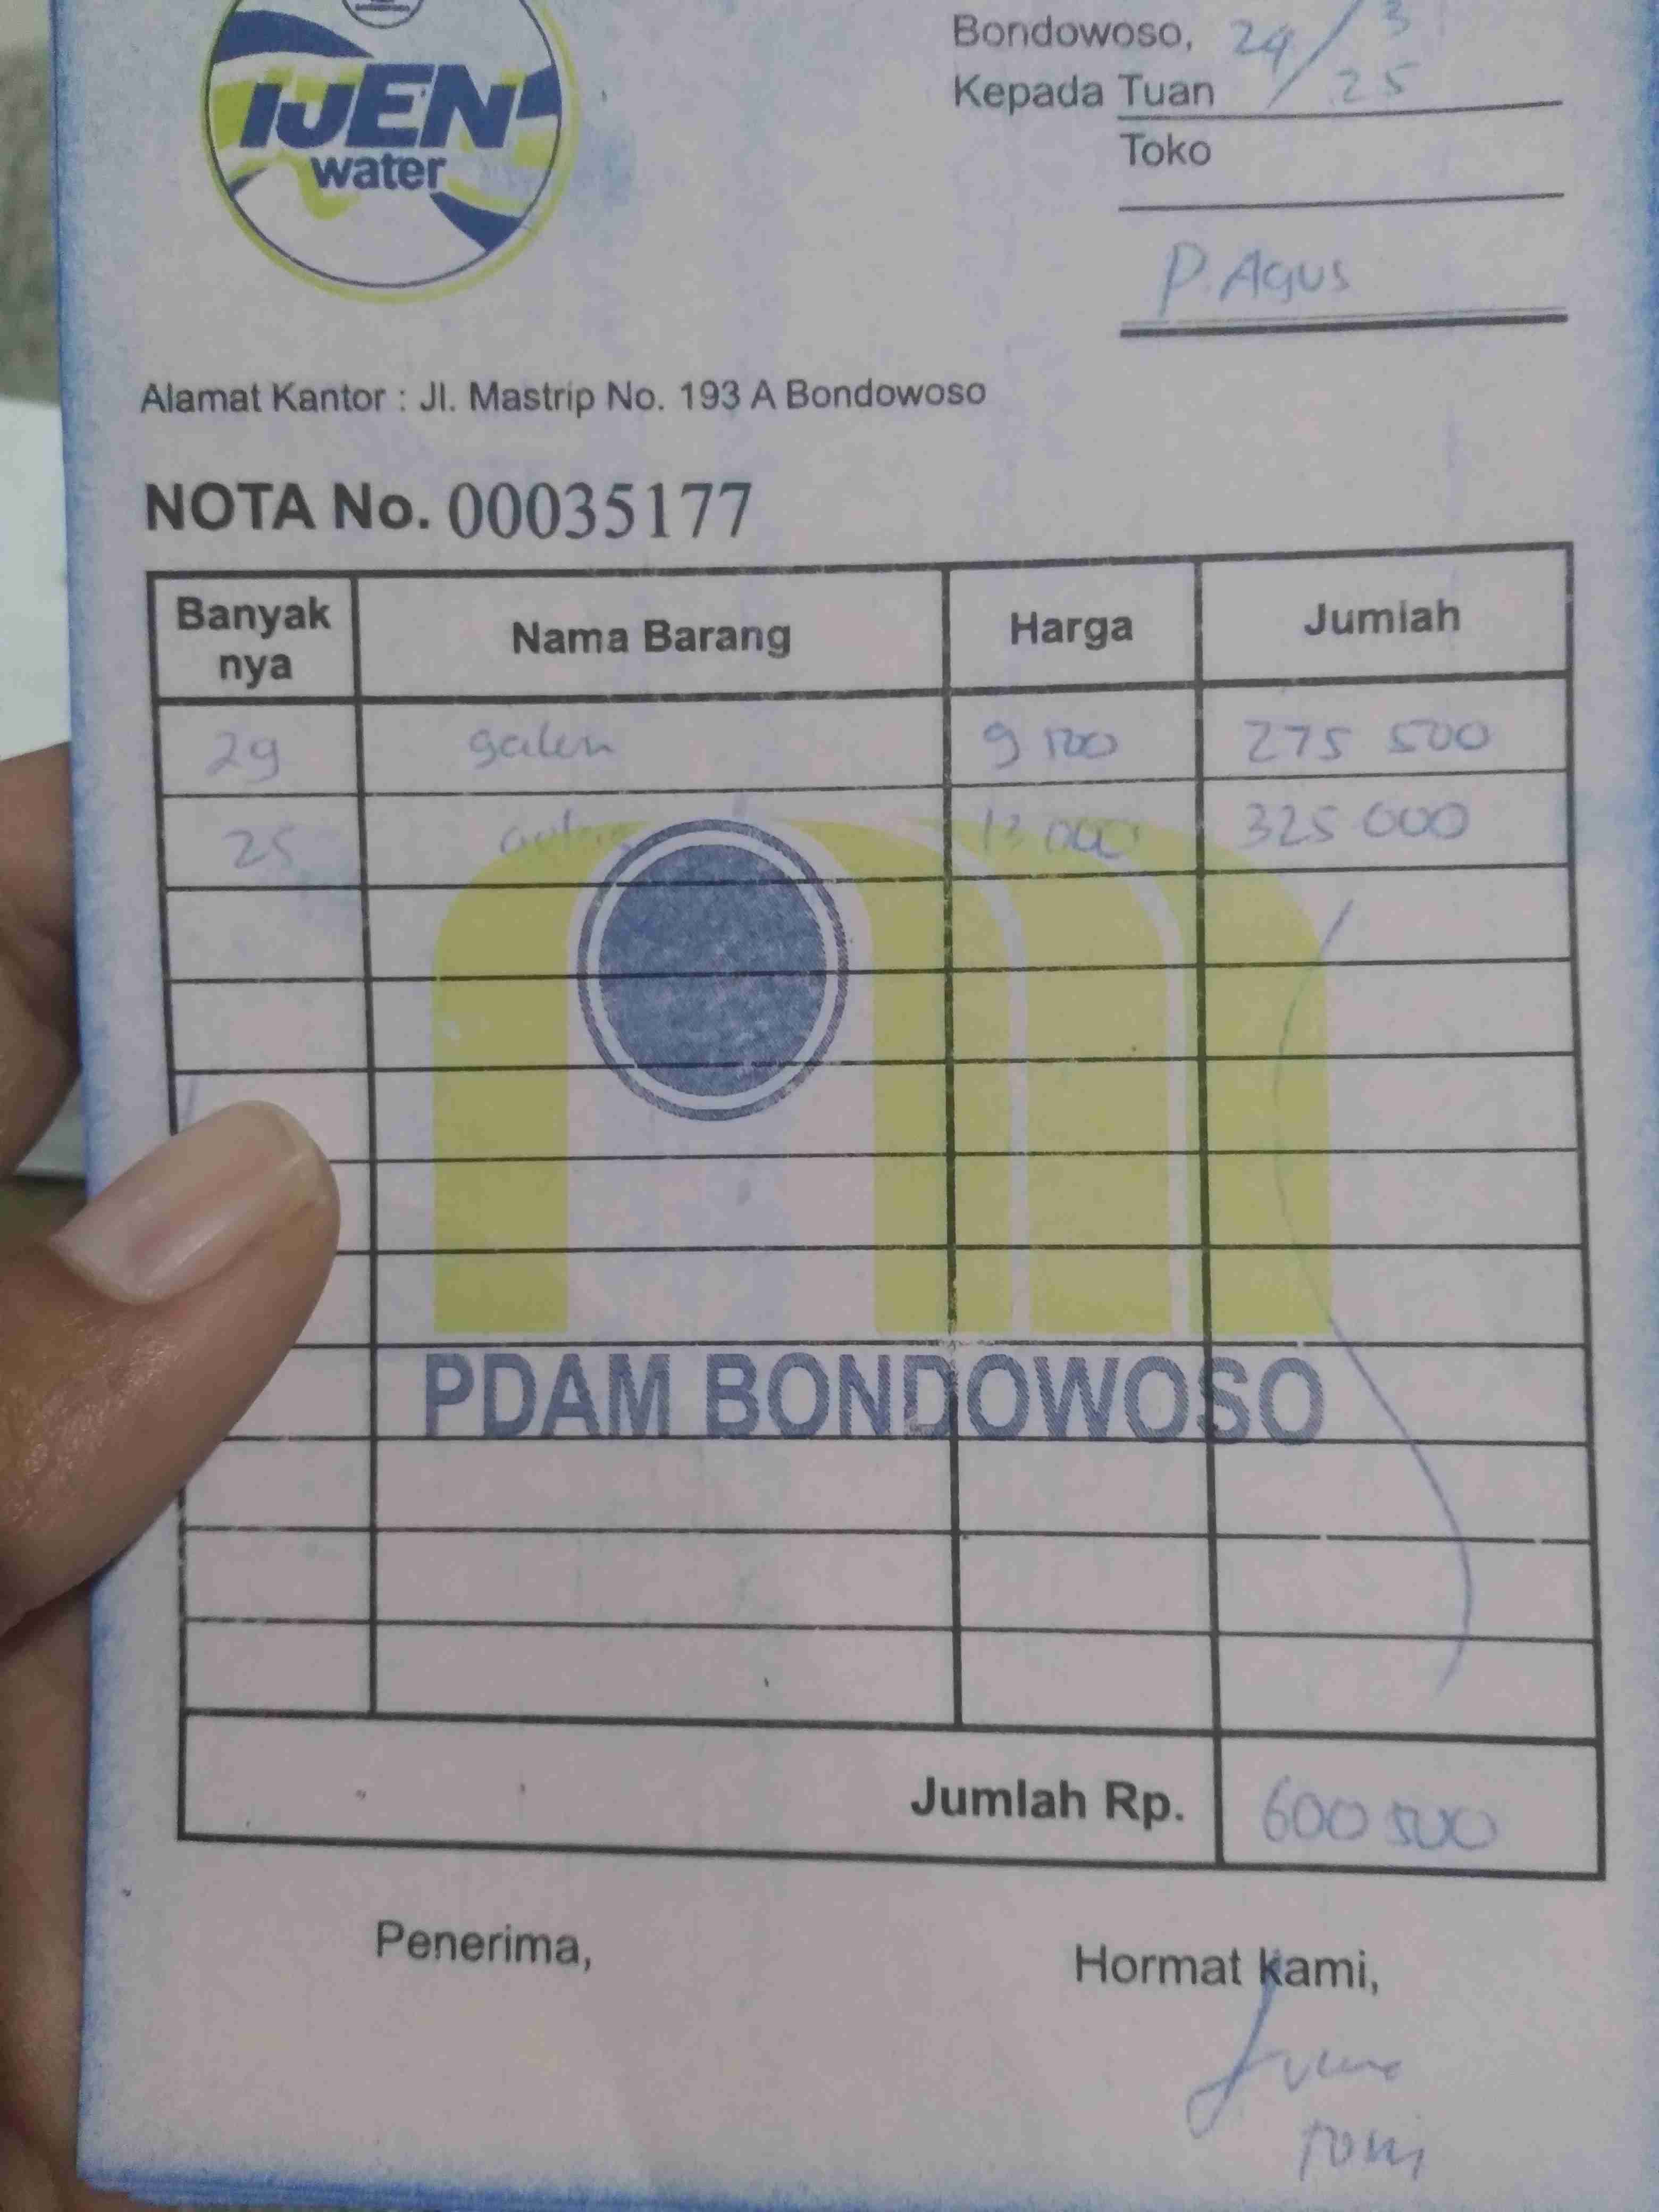 IJEN
water
Bondowoso, 24/3
Kepada Tuan 25
Toko
P. Agus
Alamat Kantor : Jl. Mastrip No. 193 A Bondowoso
NOTA No. 00035177
Banyak nya Nama Barang Harga Jumlah
29 galon 275 500
25 13 000 325 000
PDAM BONDOWOSO
Jumlah Rp. 600 500
Penerima, Hormat kami,